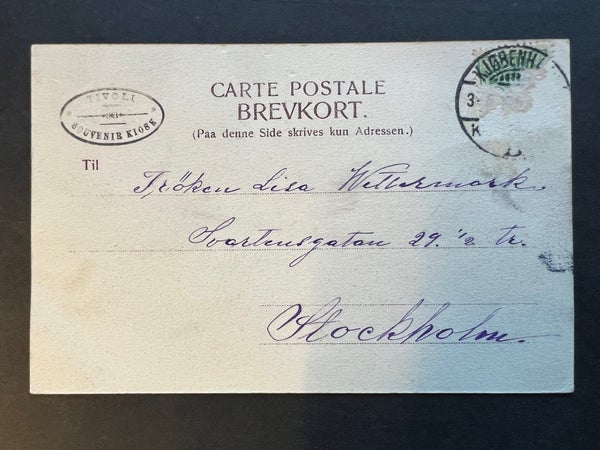 CARTE POSTALE
BREVKORT.
(Paa denne Side skrives kun Adressen.)
TIVOLI
SOUVENIR KIOSK
KJØBENH
3
K
Til
Fröken Lisa Wettermark
Svartensgatan 29. ½ tr.
Stockholm.